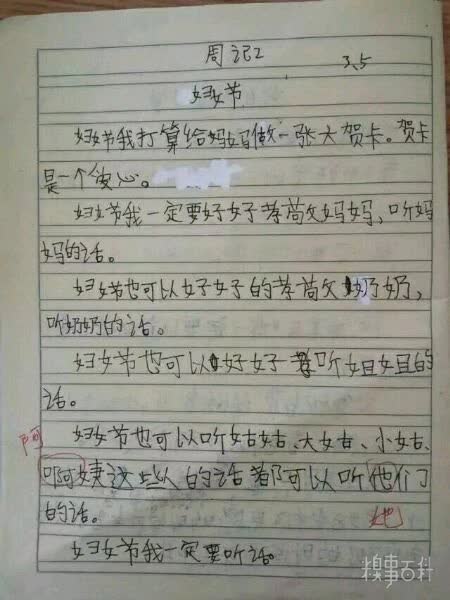 周记2 3.5
妇女节
妇女节我打算给妈妈做一张大贺卡。贺卡
是一个爱心。
妇女节我一定要好好孝敬妈妈,听妈
妈的话。
妇女节也可以好好的孝敬奶奶,
听奶奶的话。
妇女节也可以好好听姐姐的
话。
妇女节也可以听姑姑、大姑、小姑、
阿
啊姨这些人的话都可以听他们
的话。
她
妇女节我一定要听话。
糗事百科